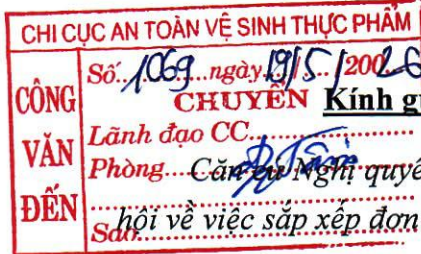 CHI CỤC AN TOÀN VỆ SINH THỰC PHẨM
CÔNG VĂN ĐẾN
Số: 1069 ngày 19/5/2026
CHUYỂN Kính gử
Lãnh đạo CC
Phòng Căn cứ Nghị quyế
hội về việc sắp xếp đơn
Sao